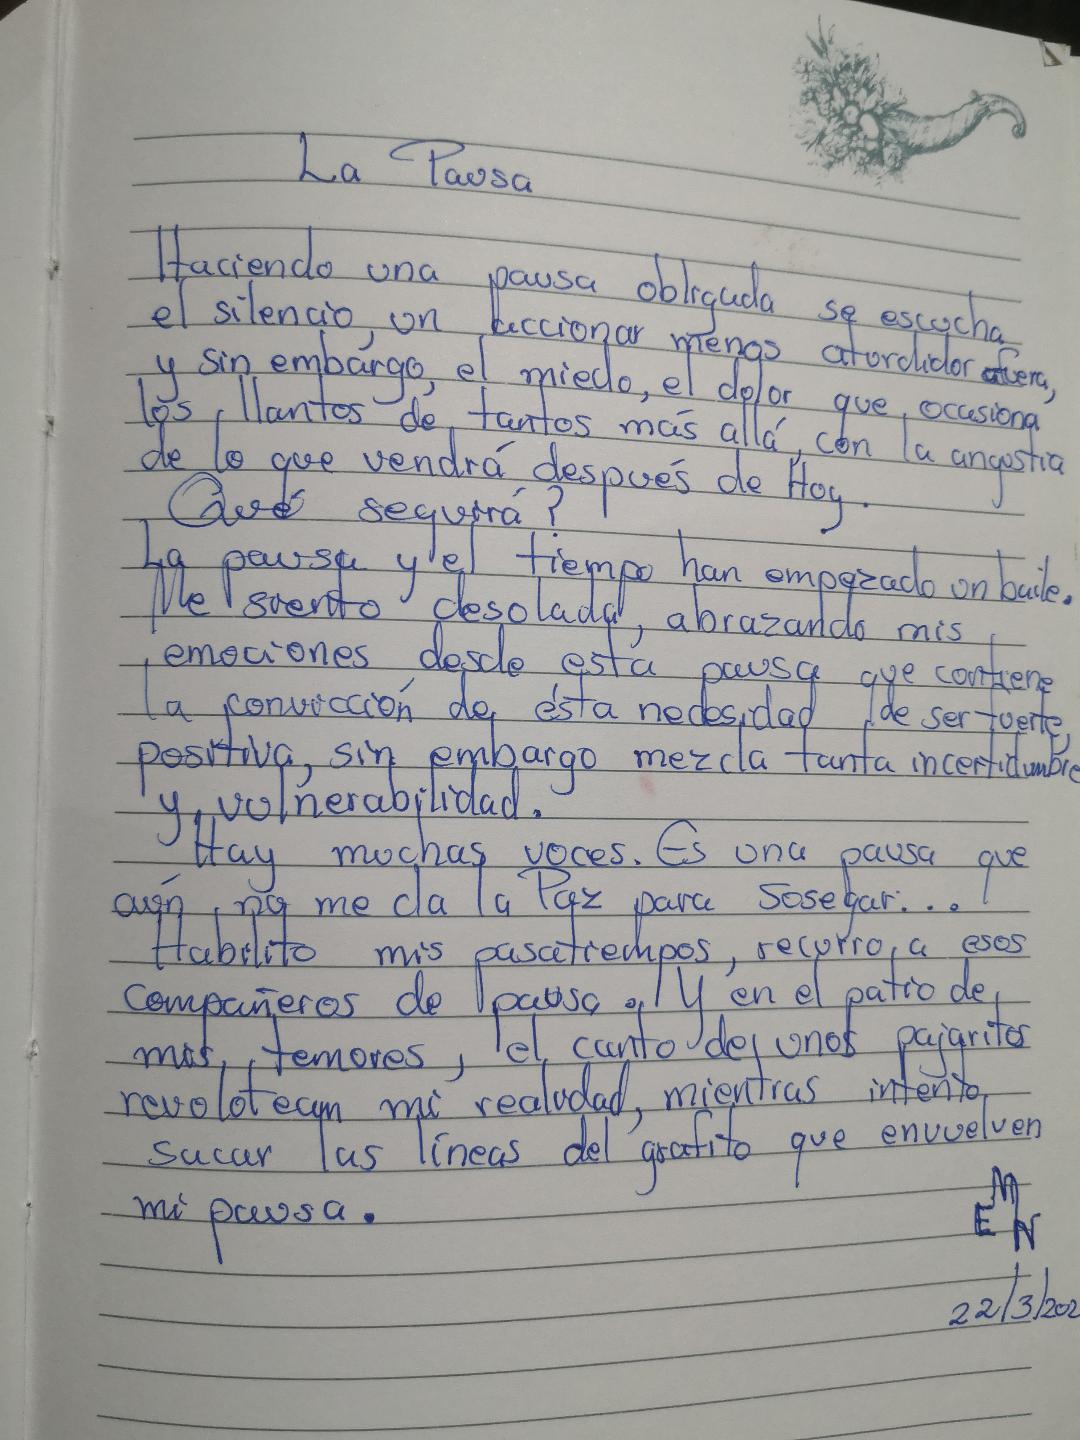 La Pausa
Haciendo una pausa obligada se escucha
el silencio, un accionar menos aturdidor afuera,
y sin embargo, el miedo, el dolor que ocasiona
los llantos de tantos más allá, con la angustia
de lo que vendrá después de Hoy.
Qué seguirá?
La pausa y el tiempo han empezado un baile.
Me siento desolada, abrazando mis
emociones desde esta pausa que contiene
la convicción de ésta necesidad de ser fuerte,
positiva, sin embargo mezcla tanta incertidumbre
y vulnerabilidad.
Hay muchas voces. Es una pausa que
aún no me da la Paz para sosegar...
Habilito mis pasatiempos, recurro a esos
compañeros de pausa. Y en el patio de
mis temores, el canto de unos pajaritos
revolotean mi realidad, mientras intento
sacar las líneas del grafito que envuelven
mi pausa.
M
E N
22/3/202